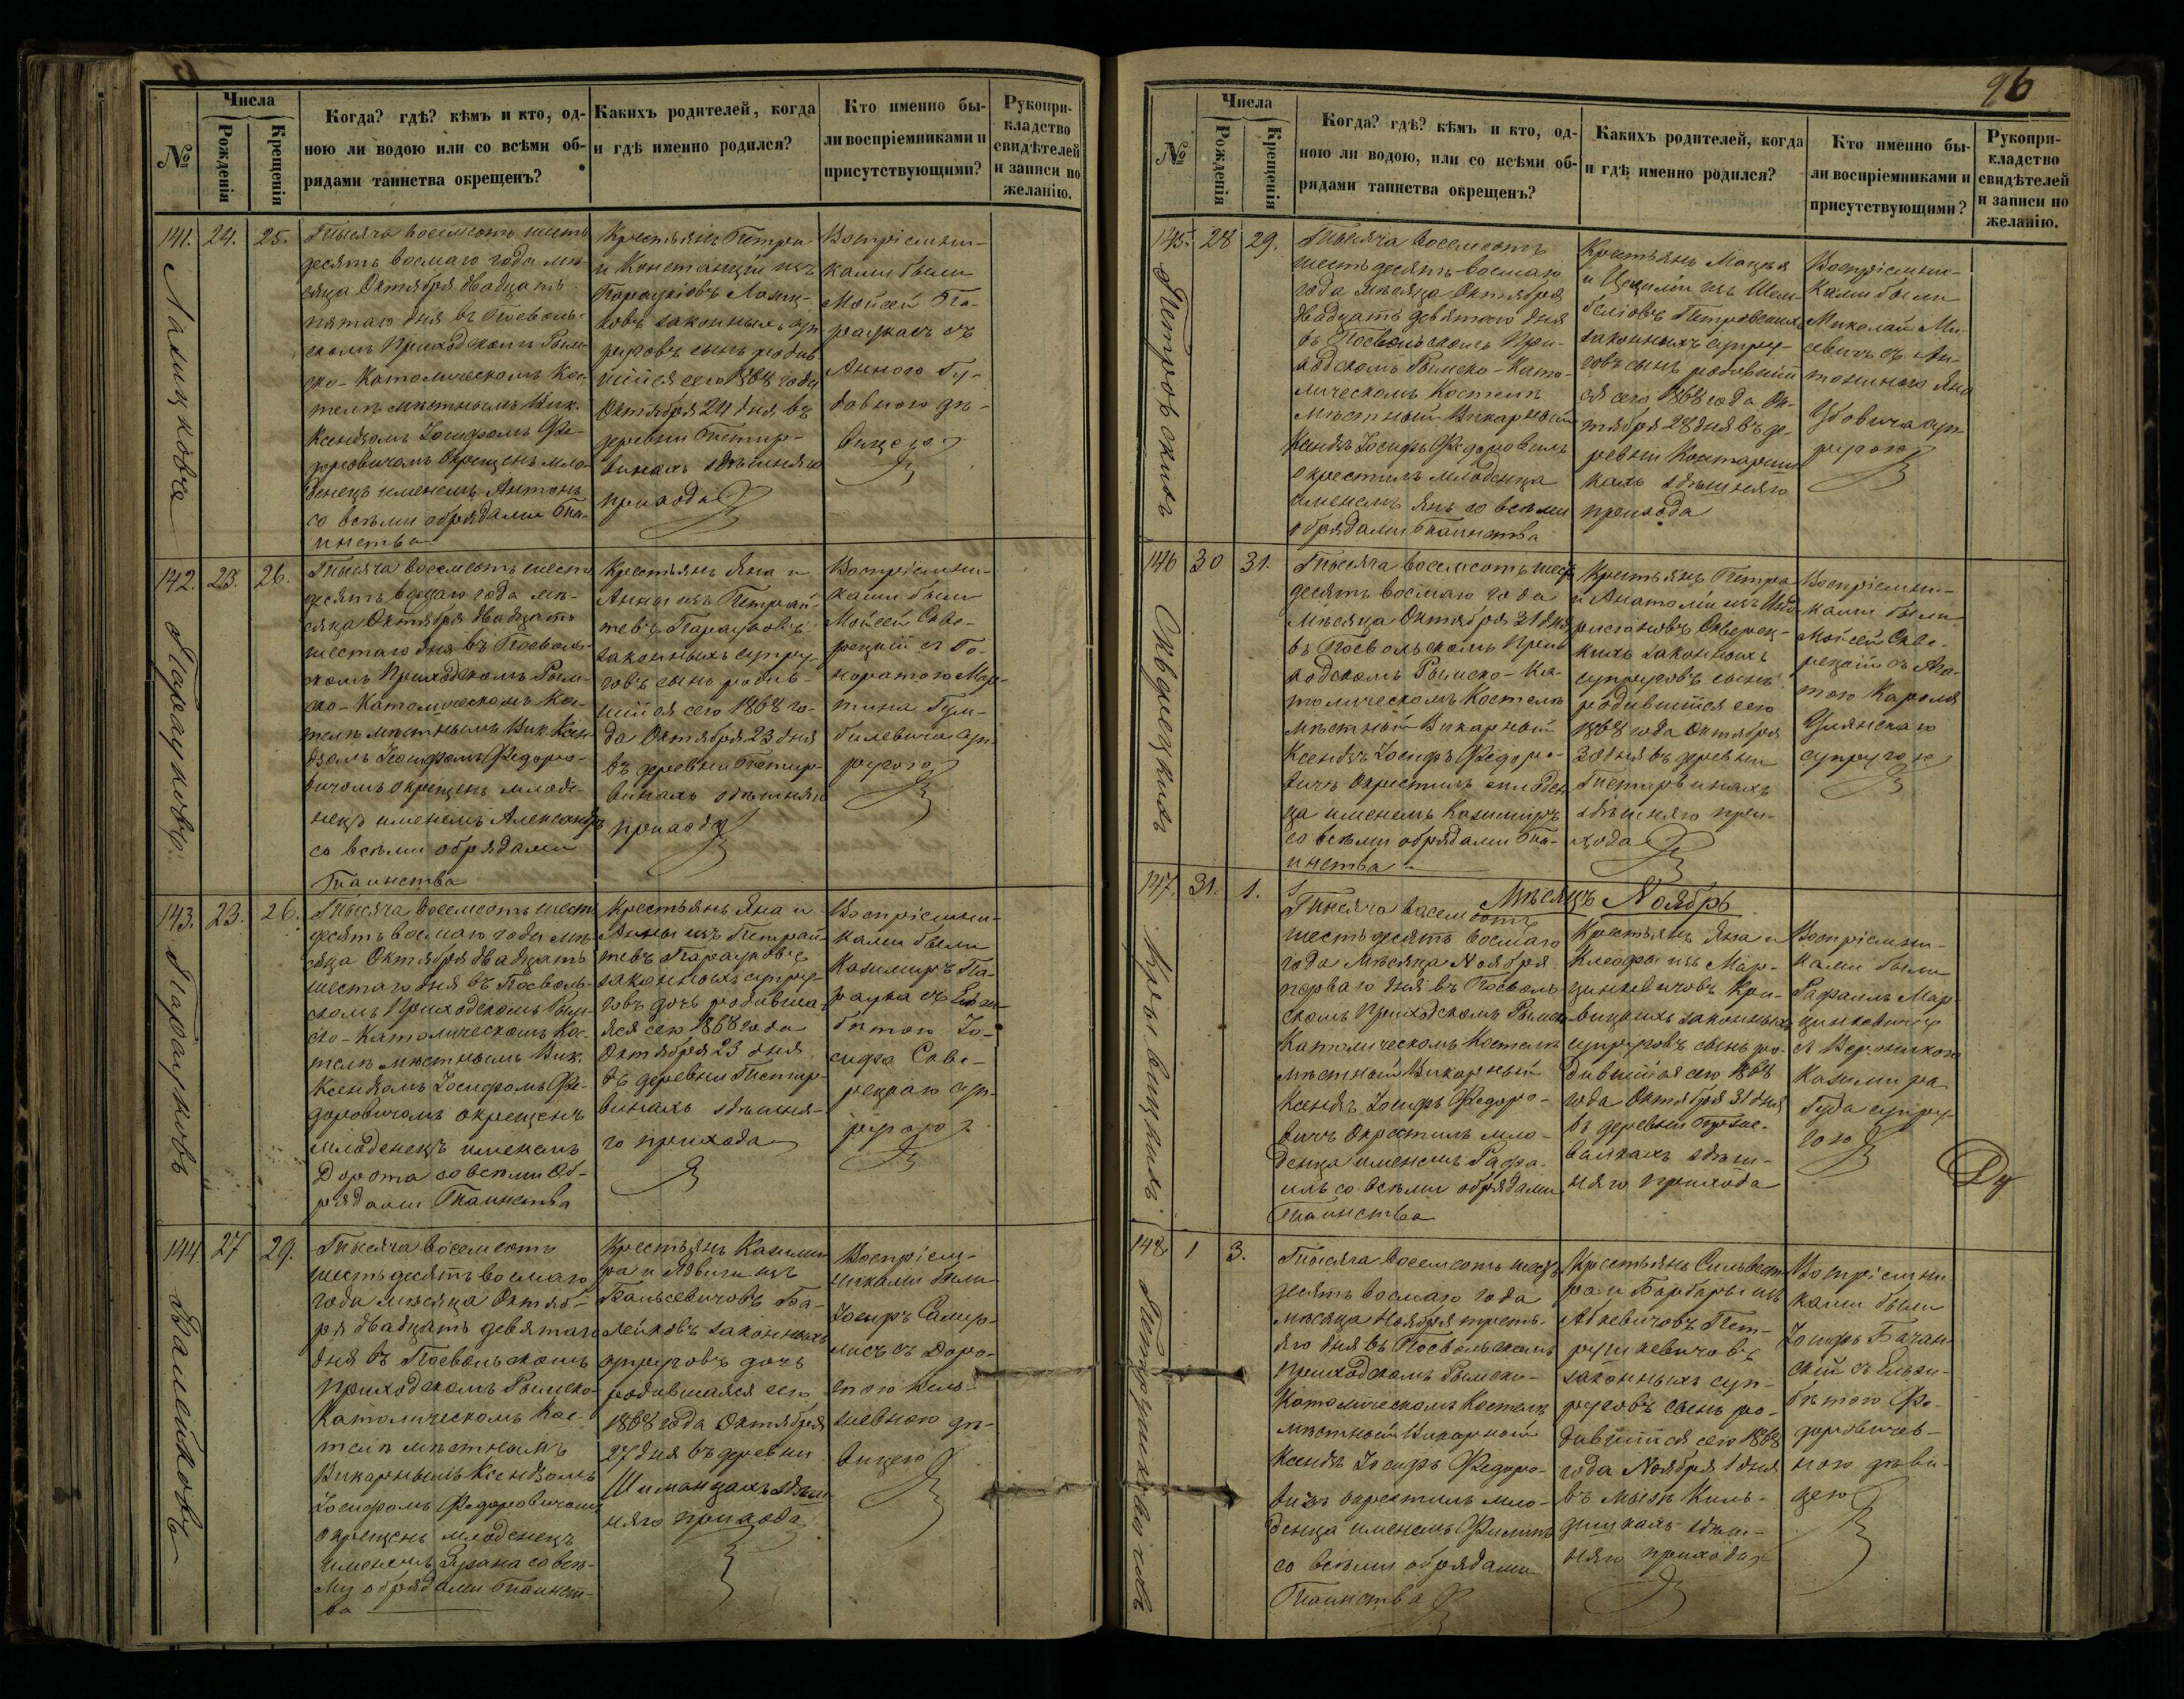 Числа
№
Рожденія
Крещенія
Когда? гдѣ? кѣмъ и кто, од-
ною ли водою или со всѣми об-
рядами таинства окрещенъ?
Какихъ родителей, когда
и гдѣ именно родился?
Кто именно бы-
ли воспріемниками и
присутствующими?
Рукопри-
кладство
свидѣтелей
и записи по
желанію.
141. 24. 25.
Тысяча восемсотъ шесть
десятъ восмаго года мѣ-
сяца Октября двадцать
пятаго дня въ Посволь-
скомъ Приходскомъ Рим-
ско-Католическомъ Кос-
телѣ мѣстнымъ Вик.
Ксендзомъ Іосифомъ Фе-
доровичемъ окрещенъ мла-
денецъ именемъ Антонъ
со всѣми обрядами Та-
инства
Крестьянъ Петра
и Констанціи изъ
законныхъ суп
руговъ сынъ родив
шійся сего 1868 года
Октября 24 дня въ
деревни
здѣшняго
прихода
Воспріемни-
ками были
Мойсей
съ
Анною
дѣ-
вицею
142. 23. 26.
Парауковъ
Тысяча восемсотъ шесть
десятъ восмаго года мѣ-
сяца Октября двадцать
шестаго дня въ Посволь-
скомъ Приходскомъ Рим-
ско-Католическомъ Кос-
телѣ мѣстнымъ Вик. Ксен-
дзомъ Іосифомъ Федоро-
вичомъ окрещенъ младе-
нецъ именемъ Александръ
со всѣми обрядами
Таинства
Крестьянъ Яна и
Анны изъ Петрай-
тевъ Парауковъ
законныхъ супру-
говъ сынъ родив-
шійся сего 1868 го-
да Октября 23 дня
въ деревни
здѣшняго
прихода
Воспріемни-
ками были
Мойсей Скве-
рецкій съ Го-
норатою Мар-
тина
суп-
ругою
143. 23. 26.
Парауковъ
Тысяча восемсотъ шесть
десятъ восмаго года мѣ-
сяца Октября двадцать
шестаго дня въ Посволь-
скомъ Приходскомъ Рим-
ско-Католическомъ Кос-
телѣ мѣстнымъ Вик.
Ксендзомъ Іосифомъ Фе-
доровичомъ окрещенъ
младенецъ именемъ
Дорота со всѣми об-
рядами Таинства
Крестьянъ Яна и
Анны изъ Петрай-
тевъ Парауковъ
законныхъ супру-
говъ дочь родивша-
яся сего 1868 года
Октября 23 дня
въ деревни
здѣшня-
го прихода
Воспріемни-
ками были
Казимиръ Па-
раука съ Ельзи-
бѣтою Іо-
сифа Скве-
рецкаго суп-
ругою
144. 27 29.
Балейковъ
Тысяча восемсотъ
шестьдесятъ восмаго
года мѣсяца Октяб-
ря двадцать девятаго
дня въ Посвольскомъ
приходскомъ Римско-
Католическомъ Кос-
телѣ мѣстнымъ
Викарнымъ Ксендзомъ
Іосифомъ Федоровичомъ
окрещенъ младенецъ
именемъ Зузана со всѣ-
ми обрядами Таинст-
ва
Крестьянъ Казими
ра и Ядвиги изъ
Бальсевичовъ Ба-
лейковъ законныхъ
супруговъ дочь
родившаяся сего
1868 года Октября
27 дня въ деревни
Шиманцахъ здѣш-
няго прихода
Воспріем-
никами были
Іосифъ
съ Доро-
тою
дѣ-
вицею
96
№
Числа
Рожденія
Крещенія
Когда? гдѣ? кѣмъ и кто, од-
ною ли водою, или со всѣми об-
рядами таинства окрещенъ?
Какихъ родителей, когда
и гдѣ именно родился?
Кто именно бы-
ли воспріемниками и
присутствующими?
Рукопри-
кладство
свидѣтелей
и записи по
желанію.
145. 28 29.
Петровскихъ
Тысяча восемсотъ
шестьдесятъ восмаго
года мѣсяца Октября
двадцать девятаго дня
въ Посвольскомъ При-
ходскомъ Римско-Като-
лическомъ Костелѣ
Мѣстный Викарный
Ксендзъ Іосифъ Федоровичъ
окрестилъ младенца
именемъ Янъ со всѣми
обрядами Таинства
Крестьянъ Мацея
и Цециліи изъ Шем-
Петровскихъ
законныхъ супру-
говъ сынъ родившій
ся сего 1868 года Ок-
тября 28 дня въ де-
ревни
здѣшняго
прихода
Воспріемни-
ками были
Миколай Ми-
севичъ съ Ан-
Яна
суп
ругою
146 30 31.
Скверецкихъ
Тысяча восемсотъ шесть
десятъ восмаго года
Мѣсяца Октября 31 дня
въ Посвольскомъ При
ходскомъ Римско-Ка-
толическомъ Костелѣ
мѣстный Викарный
Ксендзъ Іосифъ Федоро-
вичъ окрестилъ младен
ца именемъ Казимиръ
со всѣми обрядами Та-
инства
Крестьянъ Петра
и Анатоліи изъ
Скверец-
кихъ законныхъ
супруговъ сынъ
родившійся сего
1868 года Октября
30 дня въ деревни
здѣшняго при-
хода
Воспріемни-
ками были
Мойсей Скве-
рецкій съ Ага-
тою Кароля
супругою
147. 31. 1.
Мѣсяцъ Ноябрь
Тысяча восемсотъ
шестьдесятъ восмаго
года Мѣсяца Ноября
перваго дня въ Посволь
скомъ Приходскомъ Римско
Католическомъ Костелѣ
мѣстный Викарный
Ксендзъ Іосифъ Федоро-
вичъ окрестилъ мла-
денца именемъ Рафа-
илъ со всѣми обрядами
Таинства
Крестьянъ Яна и
Клеофы изъ Мар-
цинкевичовъ Кри-
вицкихъ законныхъ
супруговъ сынъ ро-
дившійся сего 1868
года Октября 31 дня
въ деревни
здѣш-
няго прихода
Воспріемни-
ками были
Рафаилъ Мар-
цинкевичъ
съ Вероникою
Казимира
супру-
гою
148. 1 3.
Тысяча восемсотъ шесть
десятъ восмаго года
мѣсяца Ноября треть-
яго дня въ Посвольскомъ
приходскомъ Римско-
Католическомъ Костелѣ
мѣстный Викарный
Ксендзъ Іосифъ Федоро-
вичъ окрестилъ мла-
денца именемъ Филипъ
со всѣми обрядами
Таинства
Крестьянъ Сильвест
ра и Барбары изъ
законныхъ суп-
руговъ сынъ ро-
дившійся сего 1868
года Ноября 1 дня
въ
здѣш-
няго прихода
Воспріемни
ками были
Іосифъ
съ Ельзи-
бѣтою Фе-
доровичев-
ною дѣви-
цею